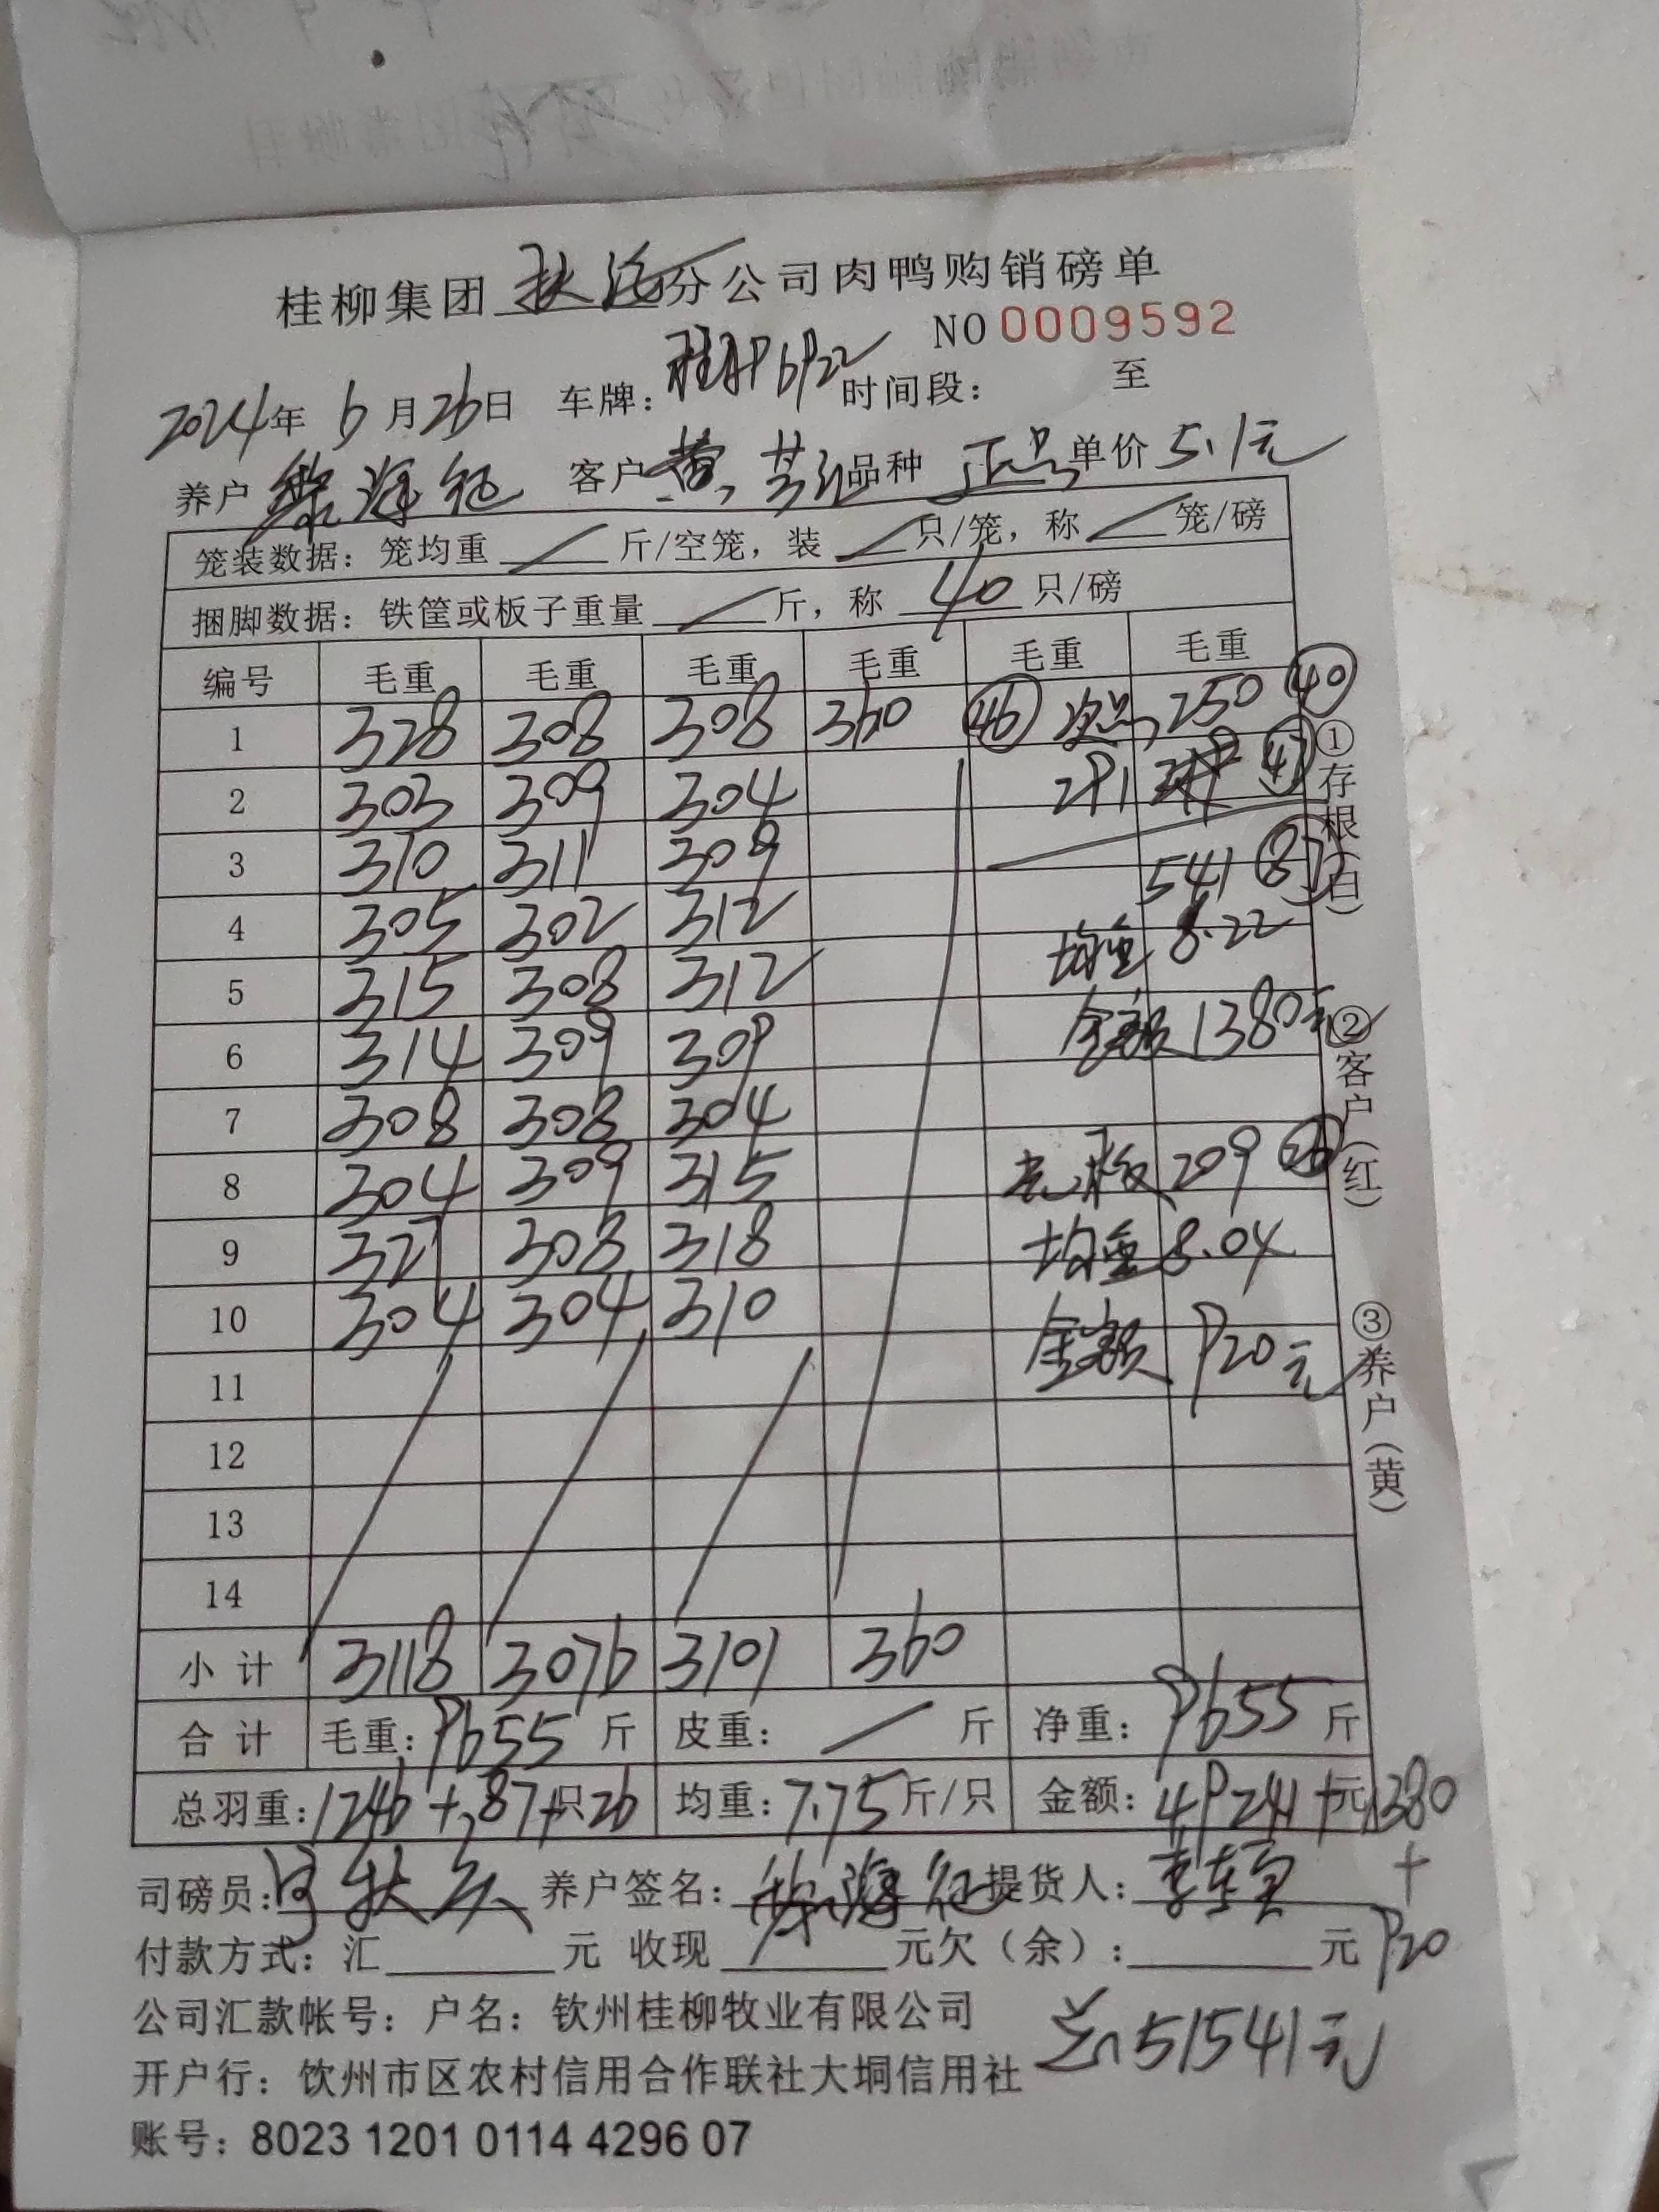 桂柳集团 扶沅 分公司肉鸭购销磅单
NO 0009592
2024年 6月26日 车牌: 时间段: 至
养户 海 客户 黄 品种 正品 单价 5.1元
笼装数据: 笼均重 / 斤/空笼, 装 / 只/笼, 称 / 笼/磅
捆脚数据: 铁筐或板子重量 / 斤, 称 40 只/磅
编号 毛重 毛重 毛重 毛重 毛重 毛重
1 328 308 308 360 46 次品 250 40
2 303 309 304 291 47
3 310 311 309 541 87
4 305 302 312 均重 6.22
5 315 308 312 金额 1380元
6 314 309 309
7 308 308 304
8 304 309 315 毛板 209 26
9 327 308 318 均重 8.04
10 304 304 310 金额 920元
11
12
13
14
小计 3118 3076 3101 360
合计 毛重: 9655 斤 皮重: / 斤 净重: 9655 斤
总羽重: 1246+87+只26 均重: 7.75 斤/只 金额: 49241+元1380
+
920
司磅员: 养户签名: 提货人: 李
付款方式: 汇 元 收现 元欠(余): 元
公司汇款帐号: 户名: 钦州桂柳牧业有限公司
总51541元
开户行: 饮州市区农村信用合作联社大垌信用社
账号: 8023 1201 0114 4296 07
①存根(白)
②客户(红)
③养户(黄)